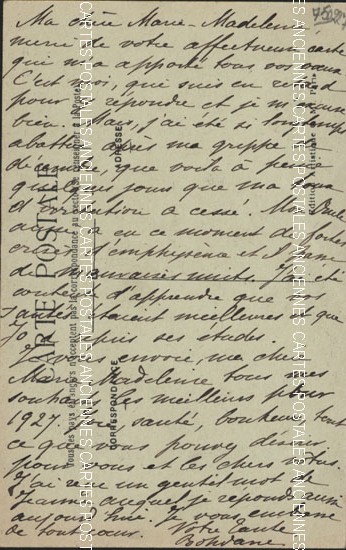 Ma chère Marie-Madeleine,
merci de votre affectueuse carte
qui m'a apporté tous vos vœux
C'est moi, qui suis en retard
pour y répondre et je m'excuse
bien. Mais, j'ai été si longtemps
abattue après ma grippe de
décembre, que voilà à peine
quelques jours que ma toux
et cessé. Mon
aussi a eu en ce moment de fortes
crises d'emphysème et
de mauvaises nuits. J'ai été
contente d'apprendre que vos
santés étaient meilleures et que
ses études.
Je vous envoie, ma chère
Marie-Madeleine, tous mes
souhaits les meilleurs pour
1927. santé, bonheur, tout
ce que vous pouvez désirer
pour vous et les chers vôtres
J'ai reçu un gentil mot de
auquel je réponds aussi
aujourd'hui. Je vous embrasse
de tout cœur. Votre tante
Bohdane
CARTE POSTALE
Tous les pays étrangers n'acceptent pas la correspondance au recto
CORRESPONDANCE
ADRESSE
CARTES POSTALES ANCIENNES CARTES POSTALES ANCIENNES